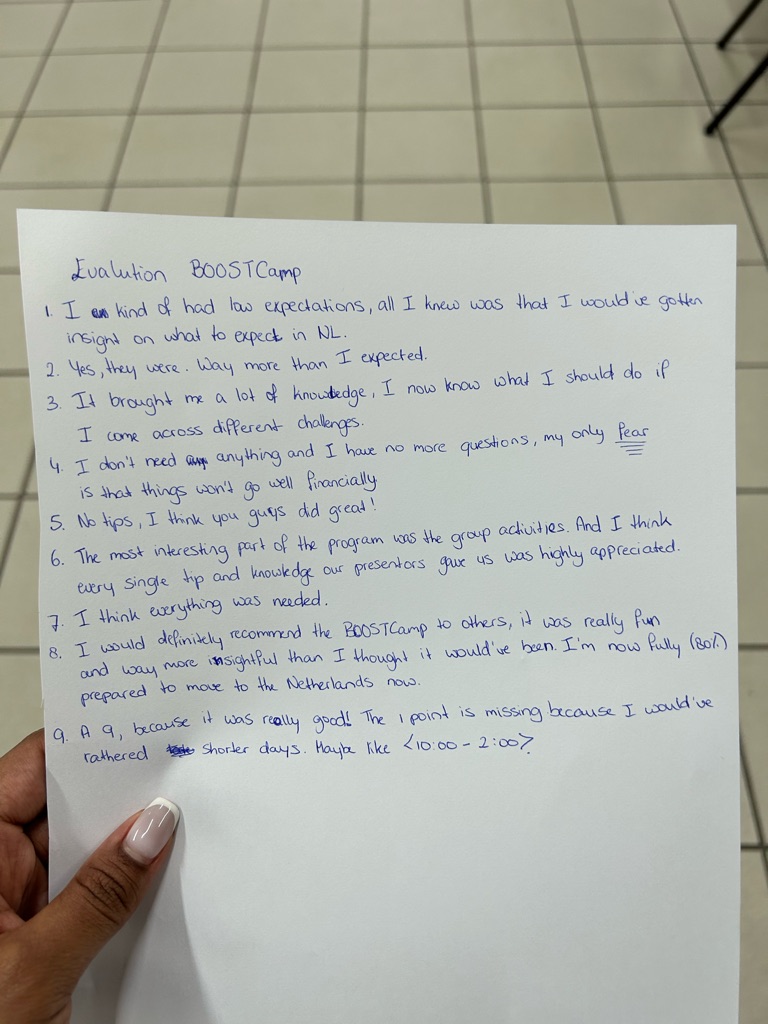 Evalution BOOSTCamp
1. I kind of had low expectations, all I knew was that I would've gotten
insight on what to expect in NL.
2. Yes, they were. Way more than I expected.
3. It brought me a lot of knowledge, I now know what I should do if
I come across different challenges.
4. I don't need anything and I have no more questions, my only fear
is that things won't go well financially
5. No tips, I think you guys did great!
6. The most interesting part of the program was the group activities. And I think
every single tip and knowledge our presentors gave us was highly appreciated.
7. I think everything was needed.
8. I would definitely recommend the BOOSTCamp to others, it was really fun
and way more insightful than I thought it would've been. I'm now fully (80%)
prepared to move to the Netherlands now.
9. A 9, because it was really good! The 1 point is missing because I would've
rathered shorter days. Maybe like <10:00 - 2:00>